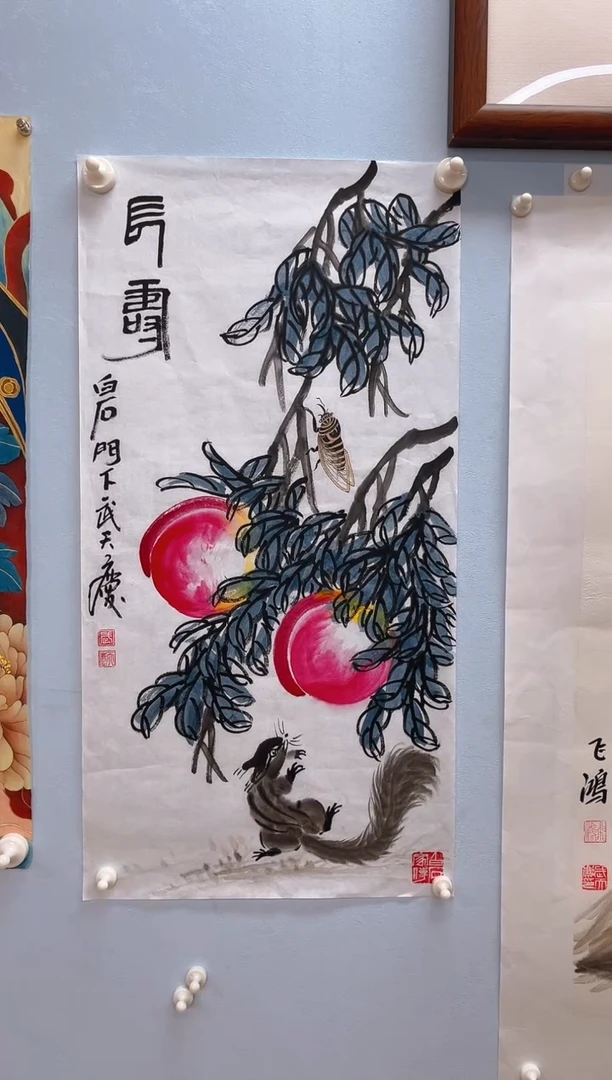 長壽
白石門下武天慶
飞鸿